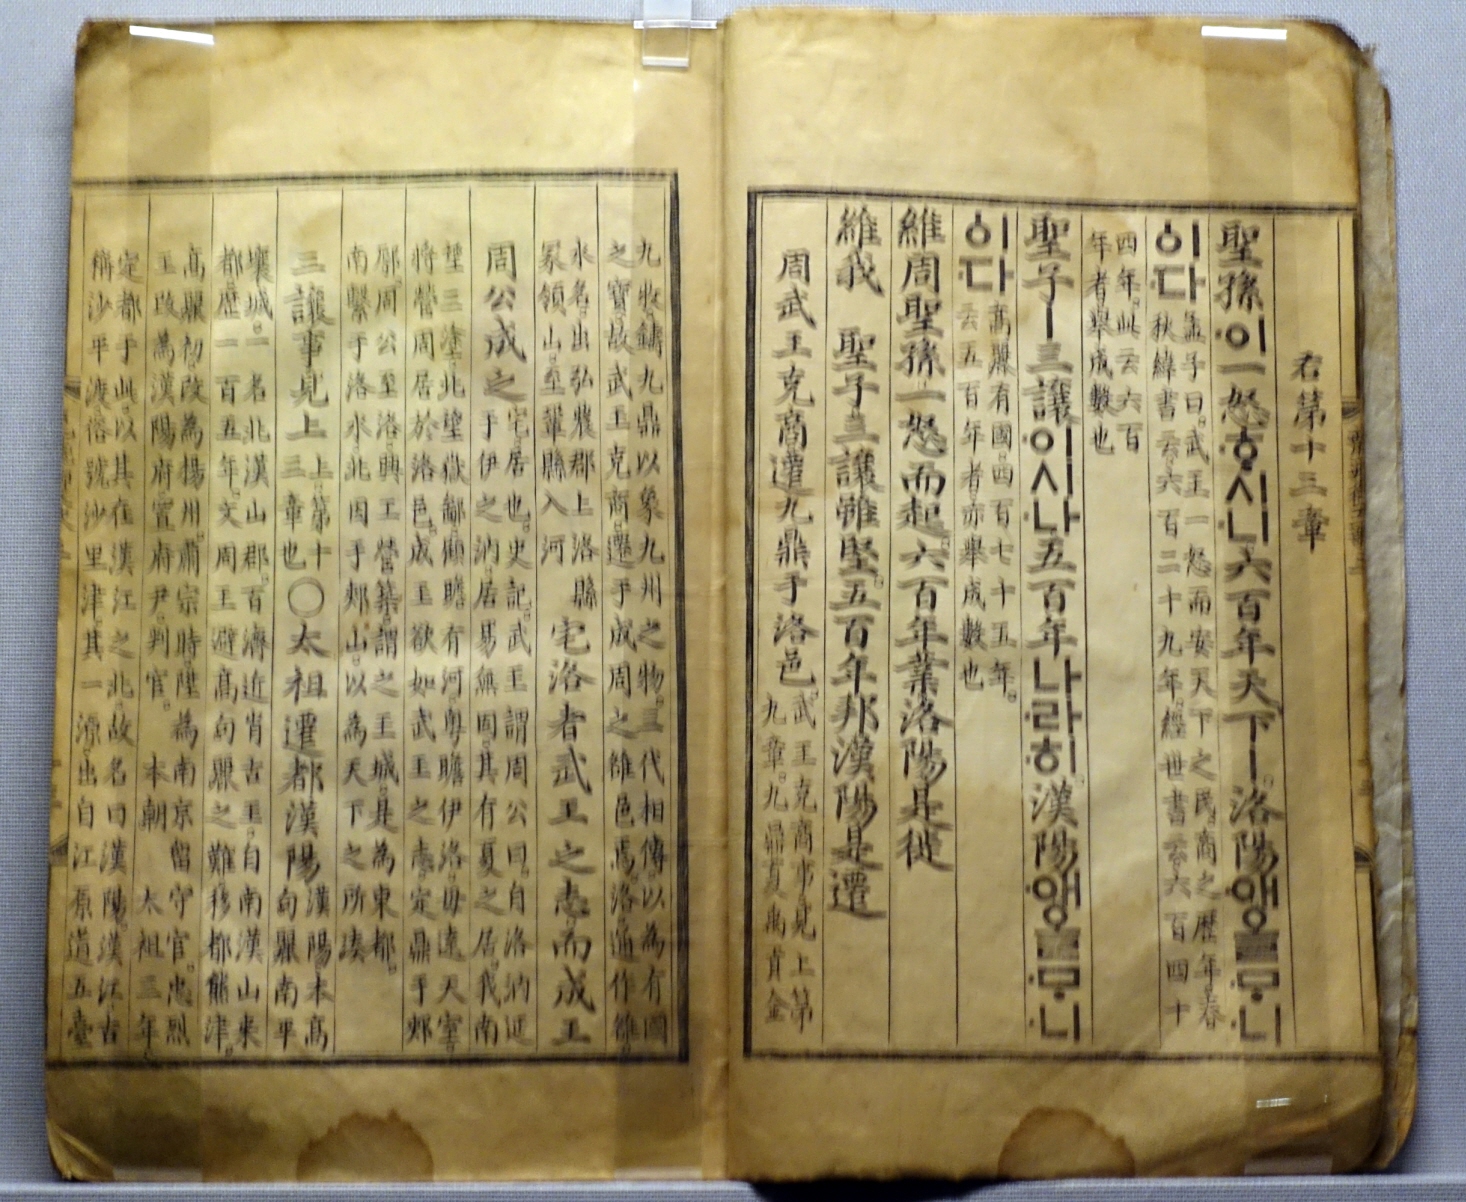 右第十三章
聖孫이一怒ᄒᆞ시니六百年天下ㅣ洛陽애올ᄆᆞ니
ᅌᅵ다
孟子曰武王一怒而安天下之民商之歷年春
秋緯書云六百二十九年經世書云六百四十
四年此云六百
年者擧成數也
聖子ㅣ三讓이시나五百年나라히漢陽애올ᄆᆞ니
ᅌᅵ다
高麗有國四百七十五年
云五百年者亦擧成數也
維周聖孫一怒而起六百年業洛陽是徙
維我 聖子三讓雖堅五百年邦漢陽是遷
周武王克商遷九鼎于洛邑
武王克商事見上第
九章九鼎夏禹貢金
九牧鑄九鼎以象九州之物三代相傳以爲有國
之寶故武王克商遷于成周之雒邑焉洛通作雒
水名出弘農郡上洛縣
冢領山至鞏縣入河
宅洛者武王之志而成王
周公成之
宅居也史記武王謂周公曰自洛汭延
于伊之汭居易無固其有夏之居我南
望三塗北望嶽鄙顧瞻有河粤瞻伊洛毋遠天室
將營周居於洛邑成王欲如武王之志定鼎于郟
鄏周公至洛興工營築謂之王城是爲東都
南繫于洛水北因于郟山以爲天下之所湊
三讓事見上
上第十
三章也
○太祖遷都漢陽
漢陽本高
句麗南平
壤城一名北漢山郡百濟近肖古王自南漢山來
都歷一百五年文周王避高句麗之難移都熊津
高麗初改爲楊州肅宗時陞爲南京留守官忠烈
王改爲漢陽府置府尹判官 本朝 太祖三年
定都于此以其在漢江之北故名曰漢陽漢江古
稱沙平渡俗號沙里津其一源出自江原道五臺